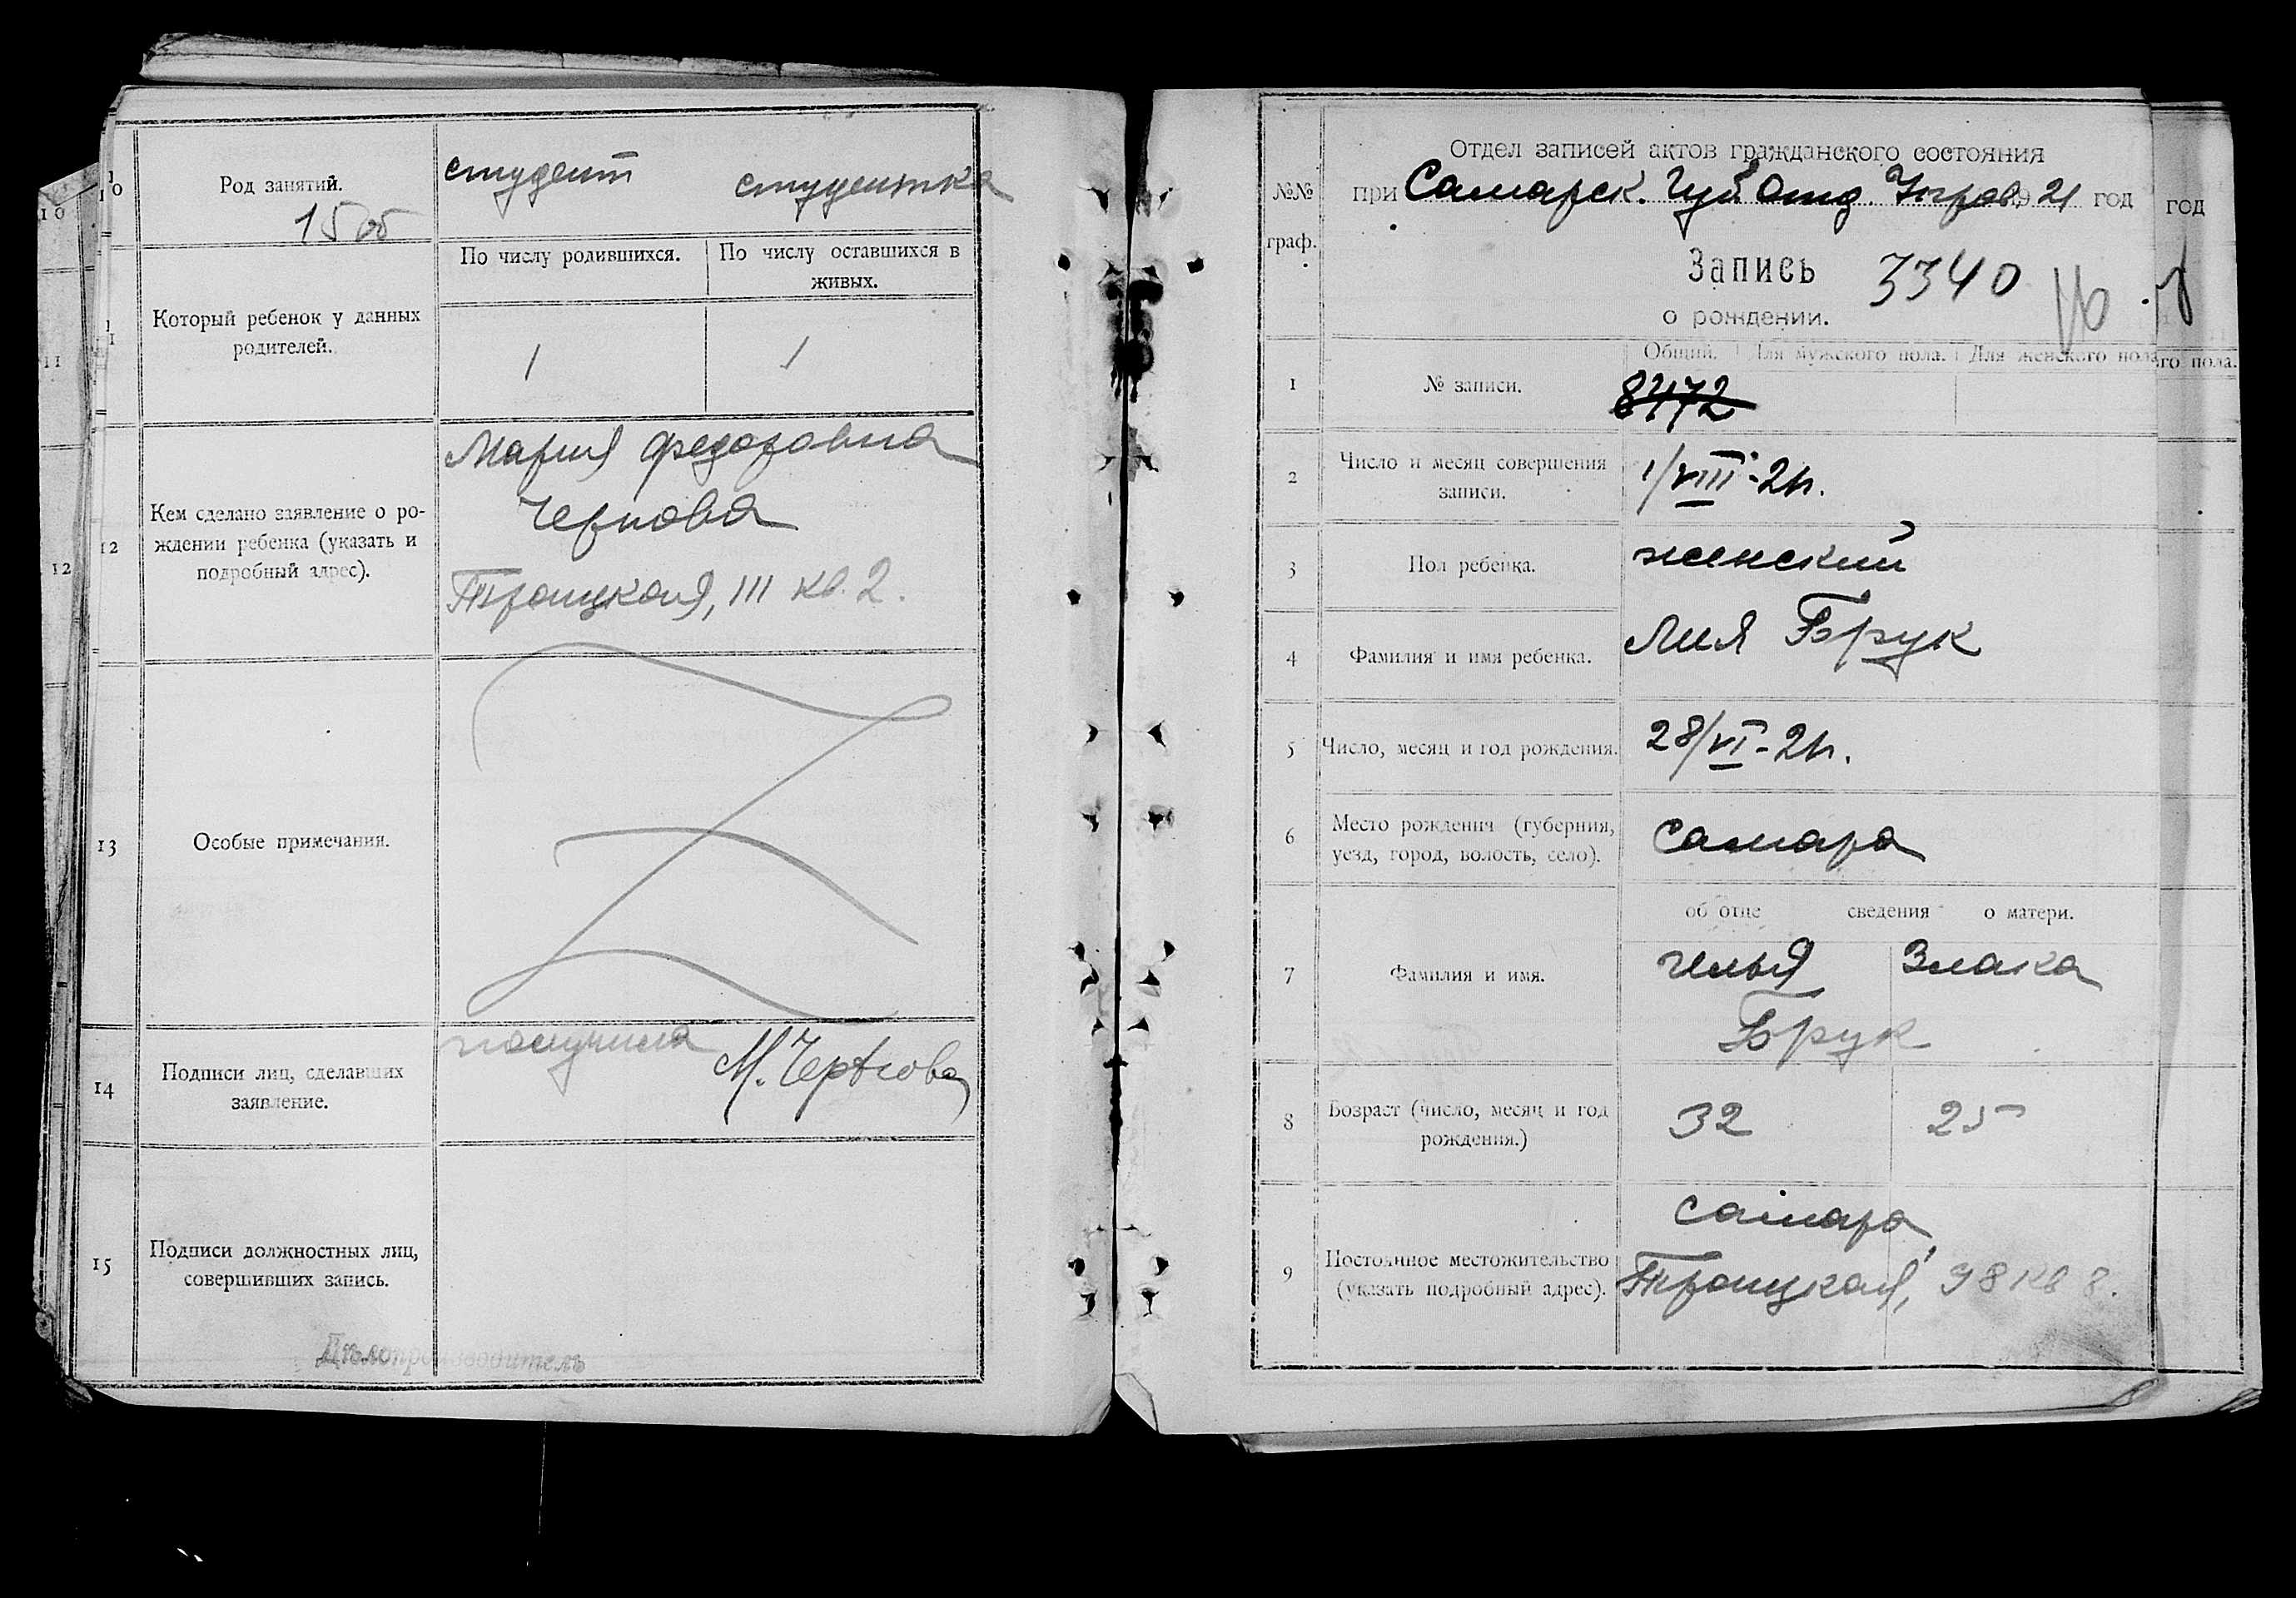 10
10
Род занятий.
студент
студентка
15 об
По числу родившихся.
По числу оставшихся в
живых.
11
11
Который ребенок у данных
родителей.
1
1
12
12
Кем сделано заявление о ро-
ждении ребенка (указать и
подробный адрес).
Мария Федоровна
Чернова
Троицкая, 111 кв. 2.
13
Особые примечания.
14
Подписи лиц, сделавших
заявление.
получила
М. Чернова
15
Подписи должностных лиц,
совершивших запись.
Дѣлопроизводитель
№№
граф.
Отдел записей актов гражданского состояния
при Самарск. Губ Отд. Управ. 1921 год
год
Запись 3340
о рождении.
16
Общий. Для мужского пола. Для женского пола
го пола.
1
№ записи.
8472
2
Число и месяц совершения
записи.
1/VIII-21г.
3
Пол ребенка.
женский
4
Фамилия и имя ребенка.
Лия Брук
5
Число, месяц и год рождения.
28/VI-21г.
6
Место рождения (губерния,
уезд, город, волость, село).
Самара
об отце сведения о матери.
7
Фамилия и имя.
Илья
Злака
Брук
8
Возраст (число, месяц и год
рождения.)
32
25
9
Постоянное местожительство
(указать подробный адрес).
Самара,
Троицкая, 98 кв 8.